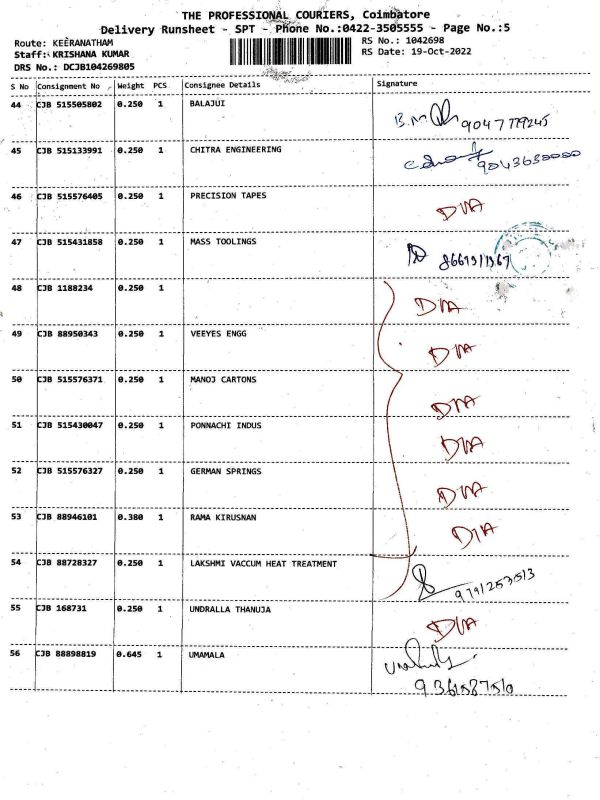 THE PROFESSIONAL COURIERS, Coimbatore
Delivery Runsheet - SPT - Phone No.:0422-3505555 - Page No.:5
Route: KEERANATHAM RS No.: 1042698
Staff: KRISHANA KUMAR RS Date: 19-Oct-2022
DRS No.: DCJB104269805
S No Consignment No Weight PCS Consignee Details Signature
44 CJB 515505802 0.250 1 BALAJUI
45 CJB 515133991 0.250 1 CHITRA ENGINEERING
46 CJB 515576405 0.250 1 PRECISION TAPES DIA
47 CJB 515431858 0.250 1 MASS TOOLINGS
48 CJB 1188234 0.250 1 DIA
49 CJB 88950343 0.250 1 VEEYES ENGG DIA
50 CJB 515576371 0.250 1 MANOJ CARTONS DIA
51 CJB 515430047 0.250 1 PONNACHI INDUS DIA
52 CJB 515576327 0.250 1 GERMAN SPRINGS DIA
53 CJB 88946101 0.380 1 RAMA KIRUSNAN DIA
54 CJB 88728327 0.250 1 LAKSHMI VACCUM HEAT TREATMENT 9791253513
55 CJB 168731 0.250 1 UNDRALLA THANUJA DIA
56 CJB 88898819 0.645 1 UMAMALA
9361587510